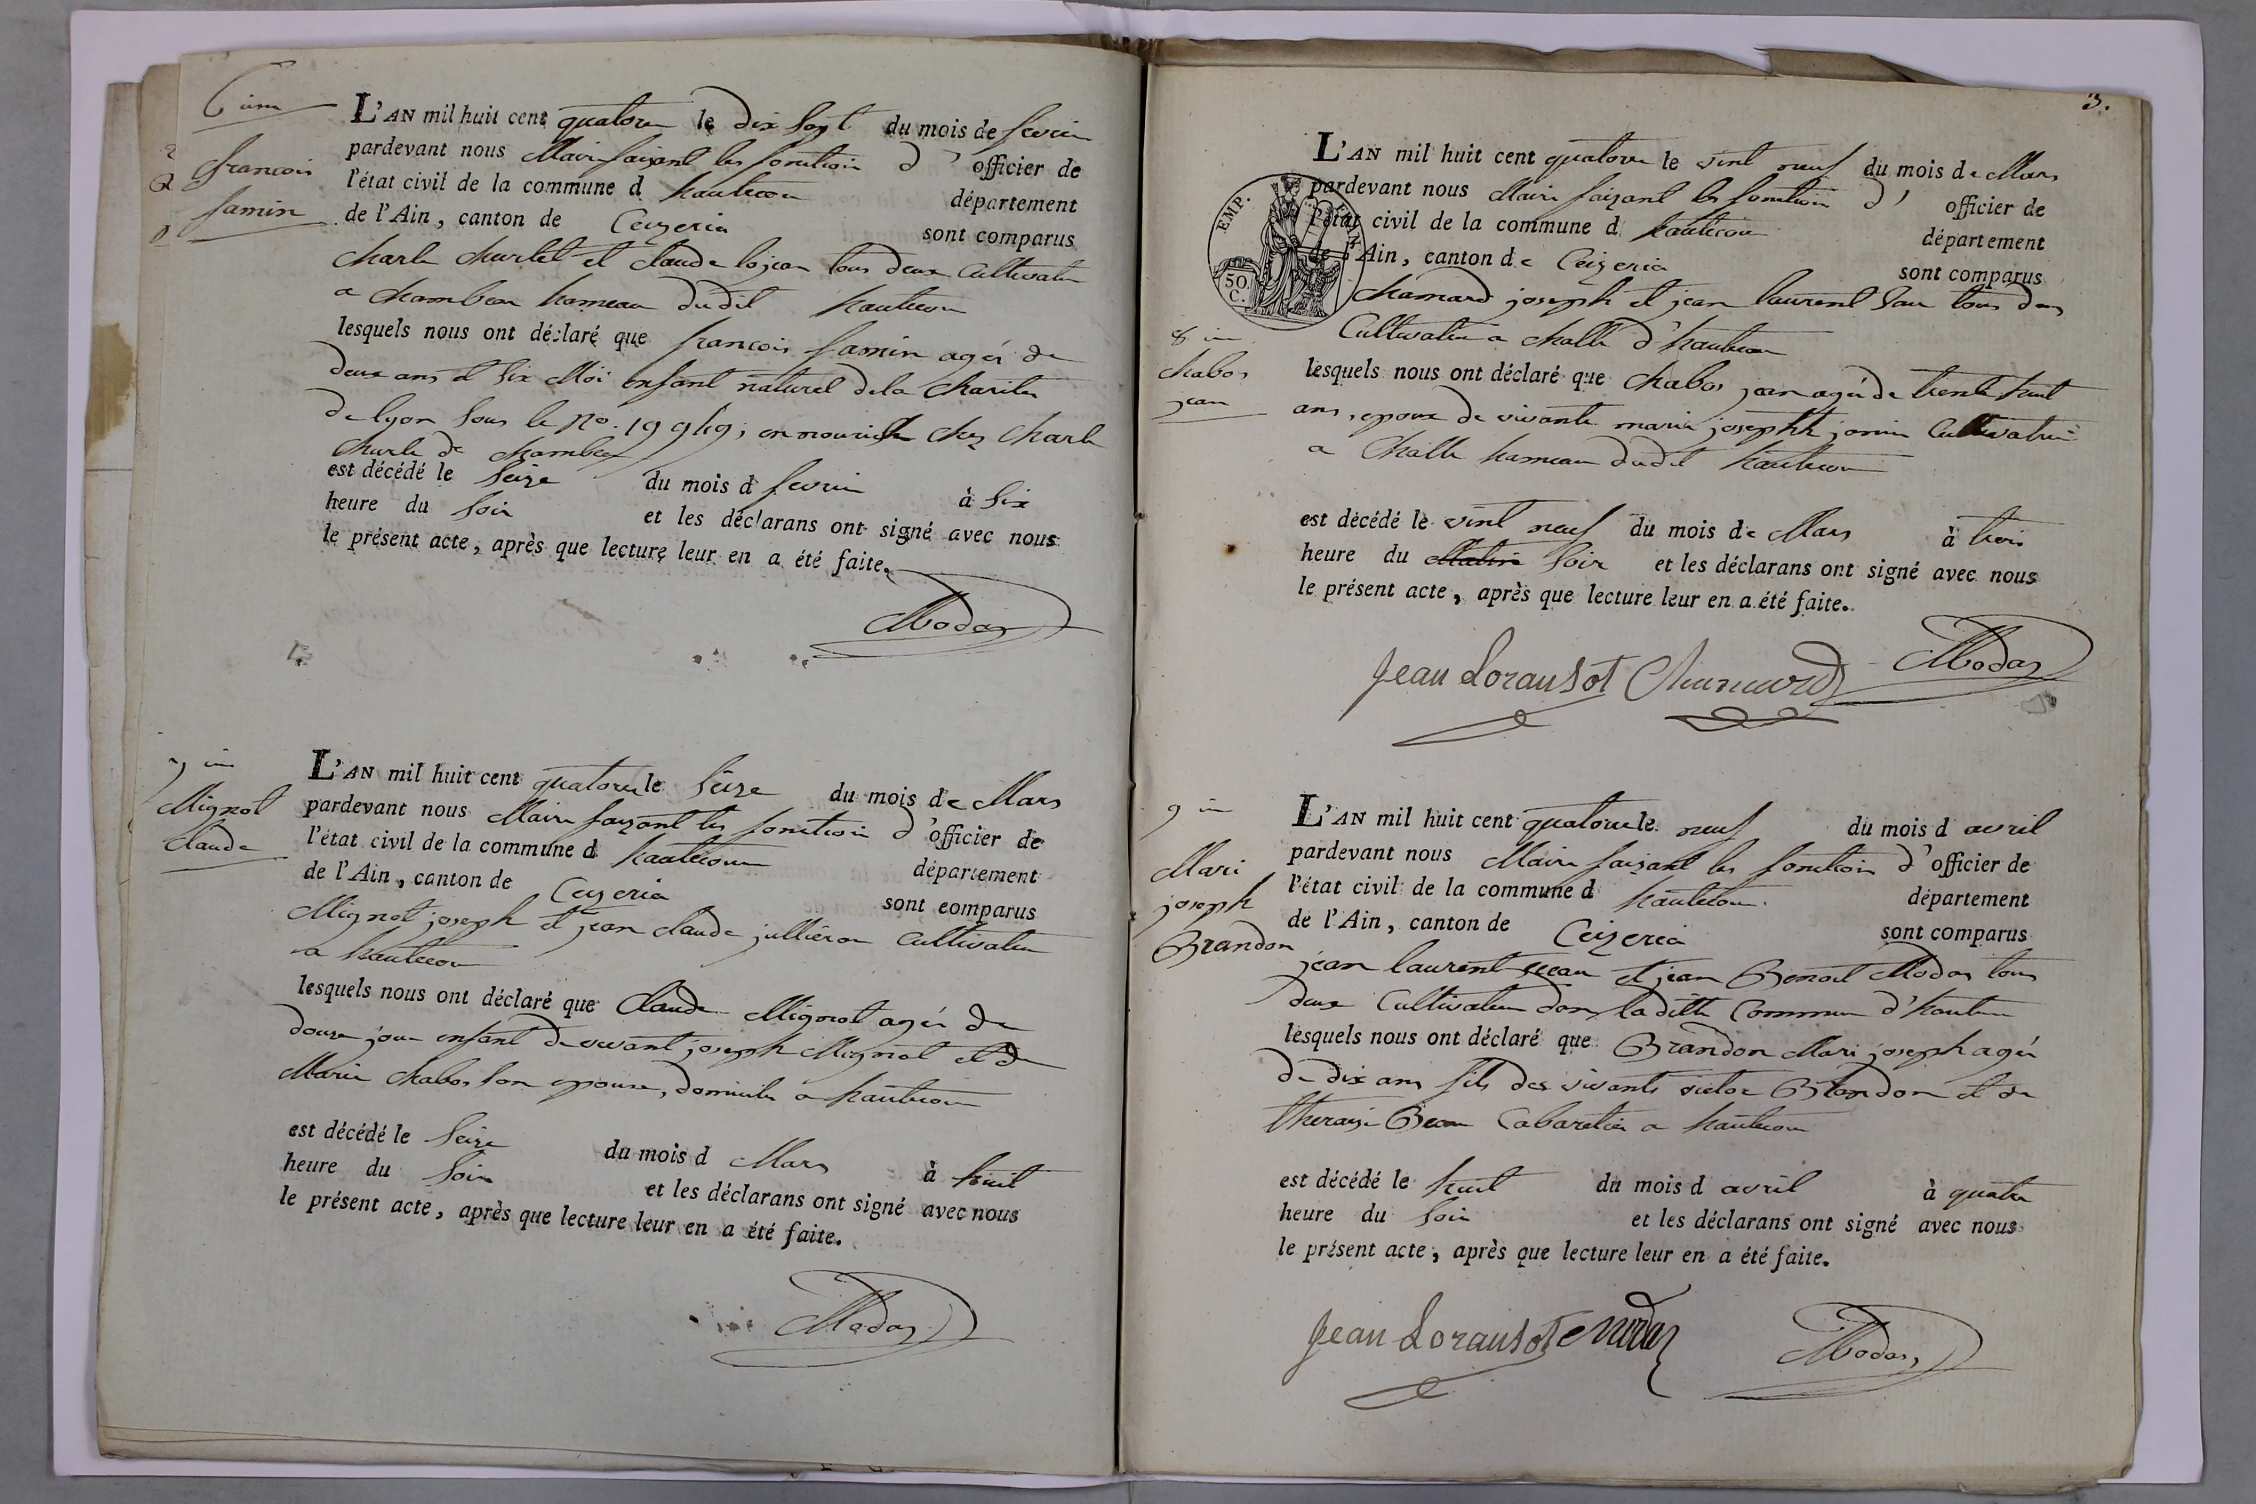 6 ime
françois
famin
L'AN mil huit cent quatorze le dix sept du mois de fevrier
pardevant nous Maire faizant les fonction d' officier de
l'état civil de la commune d hautecour département
de l'Ain, canton de Ceyzeria sont comparus
Charle Churlet et Claude lojon tous deux Cultivateur
a Chambeau hameau dudit hautecour
lesquels nous ont déclaré que françois famin agés de
deux ans et six Moi enfant naturel de la Charite
de lyon sous le No. 19949, en nourice chez Charle
Churle de Chambeau
est décédé le seize du mois d fevrier à six
heure du soir et les déclarans ont signé avec nous
le présent acte, après que lecture leur en a été faite.
Modas
7 im
Mignot
Claude
L'AN mil huit cent quatorze le seize du mois de Mars
pardevant nous Maire faizant les fonction d'officier de
l'état civil de la commune d hautecour département
de l'Ain, canton de Ceyzeria sont comparus
Mignot joseph et jean Claude jullieron Cultivateur
a hautecour
lesquels nous ont déclaré que Claude Mignot agés de
douze jour enfant de vivant joseph Mignot et de
Marie Chabos son epouse, domicilies a hautecour
est décédé le seize du mois d Mars à huit
heure du soir et les déclarans ont signé avec nous
le présent acte, après que lecture leur en a été faite.
Modas
3.
EMP.
50.
C.
8 im
Chabos
jean
L'AN mil huit cent quatorze le vint neuf du mois de Mars
pardevant nous Maire faizant les fonction d' officier de
l'état civil de la commune d hautecour département
de l'Ain, canton de Ceizeria sont comparus
Chanard joseph et jean laurent tous deux
Cultivateur a Challe d'hautecour
lesquels nous ont déclaré que Chabos jean agés de trente huit
ans, epoux de vivante marie josephte janin Cultivatrice
a Challe hameau dudit hautecour
est décédé le vint neuf du mois de Mars à trois
heure du Matin soir et les déclarans ont signé avec nous
le présent acte, après que lecture leur en a été faite.
Jean Loransot Chanard Modas
9 im
Mari
joseph
Brandon
L'AN mil huit cent quatorze le neuf du mois d avril
pardevant nous Maire faizant les fonction d'officier de
l'état civil de la commune d hautecour département
de l'Ain, canton de Ceyzeria sont comparus
jean laurent et jean Benoit Modas tous
deux Cultivateur dans laditte Commune d'hautecour
lesquels nous ont déclaré que Brandon Mari joseph agés
de dix ans fils des vivants victor Brandon et de
theraise Beau Cabaretier a hautecour
est décédé le huit du mois d avril à quatre
heure du soir et les déclarans ont signé avec nous
le présent acte, après que lecture leur en a été faite.
Jean Loransot Modas Modas